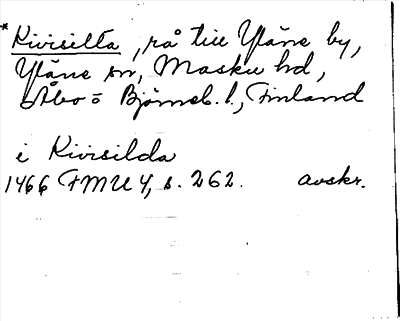 *Kivisilta, rå till Yläne by,
Yläne sn, Masku hd,
Åbo o Björneb. l., Finland
i Kivisilda
1466 FMU 4, s. 262. avskr.